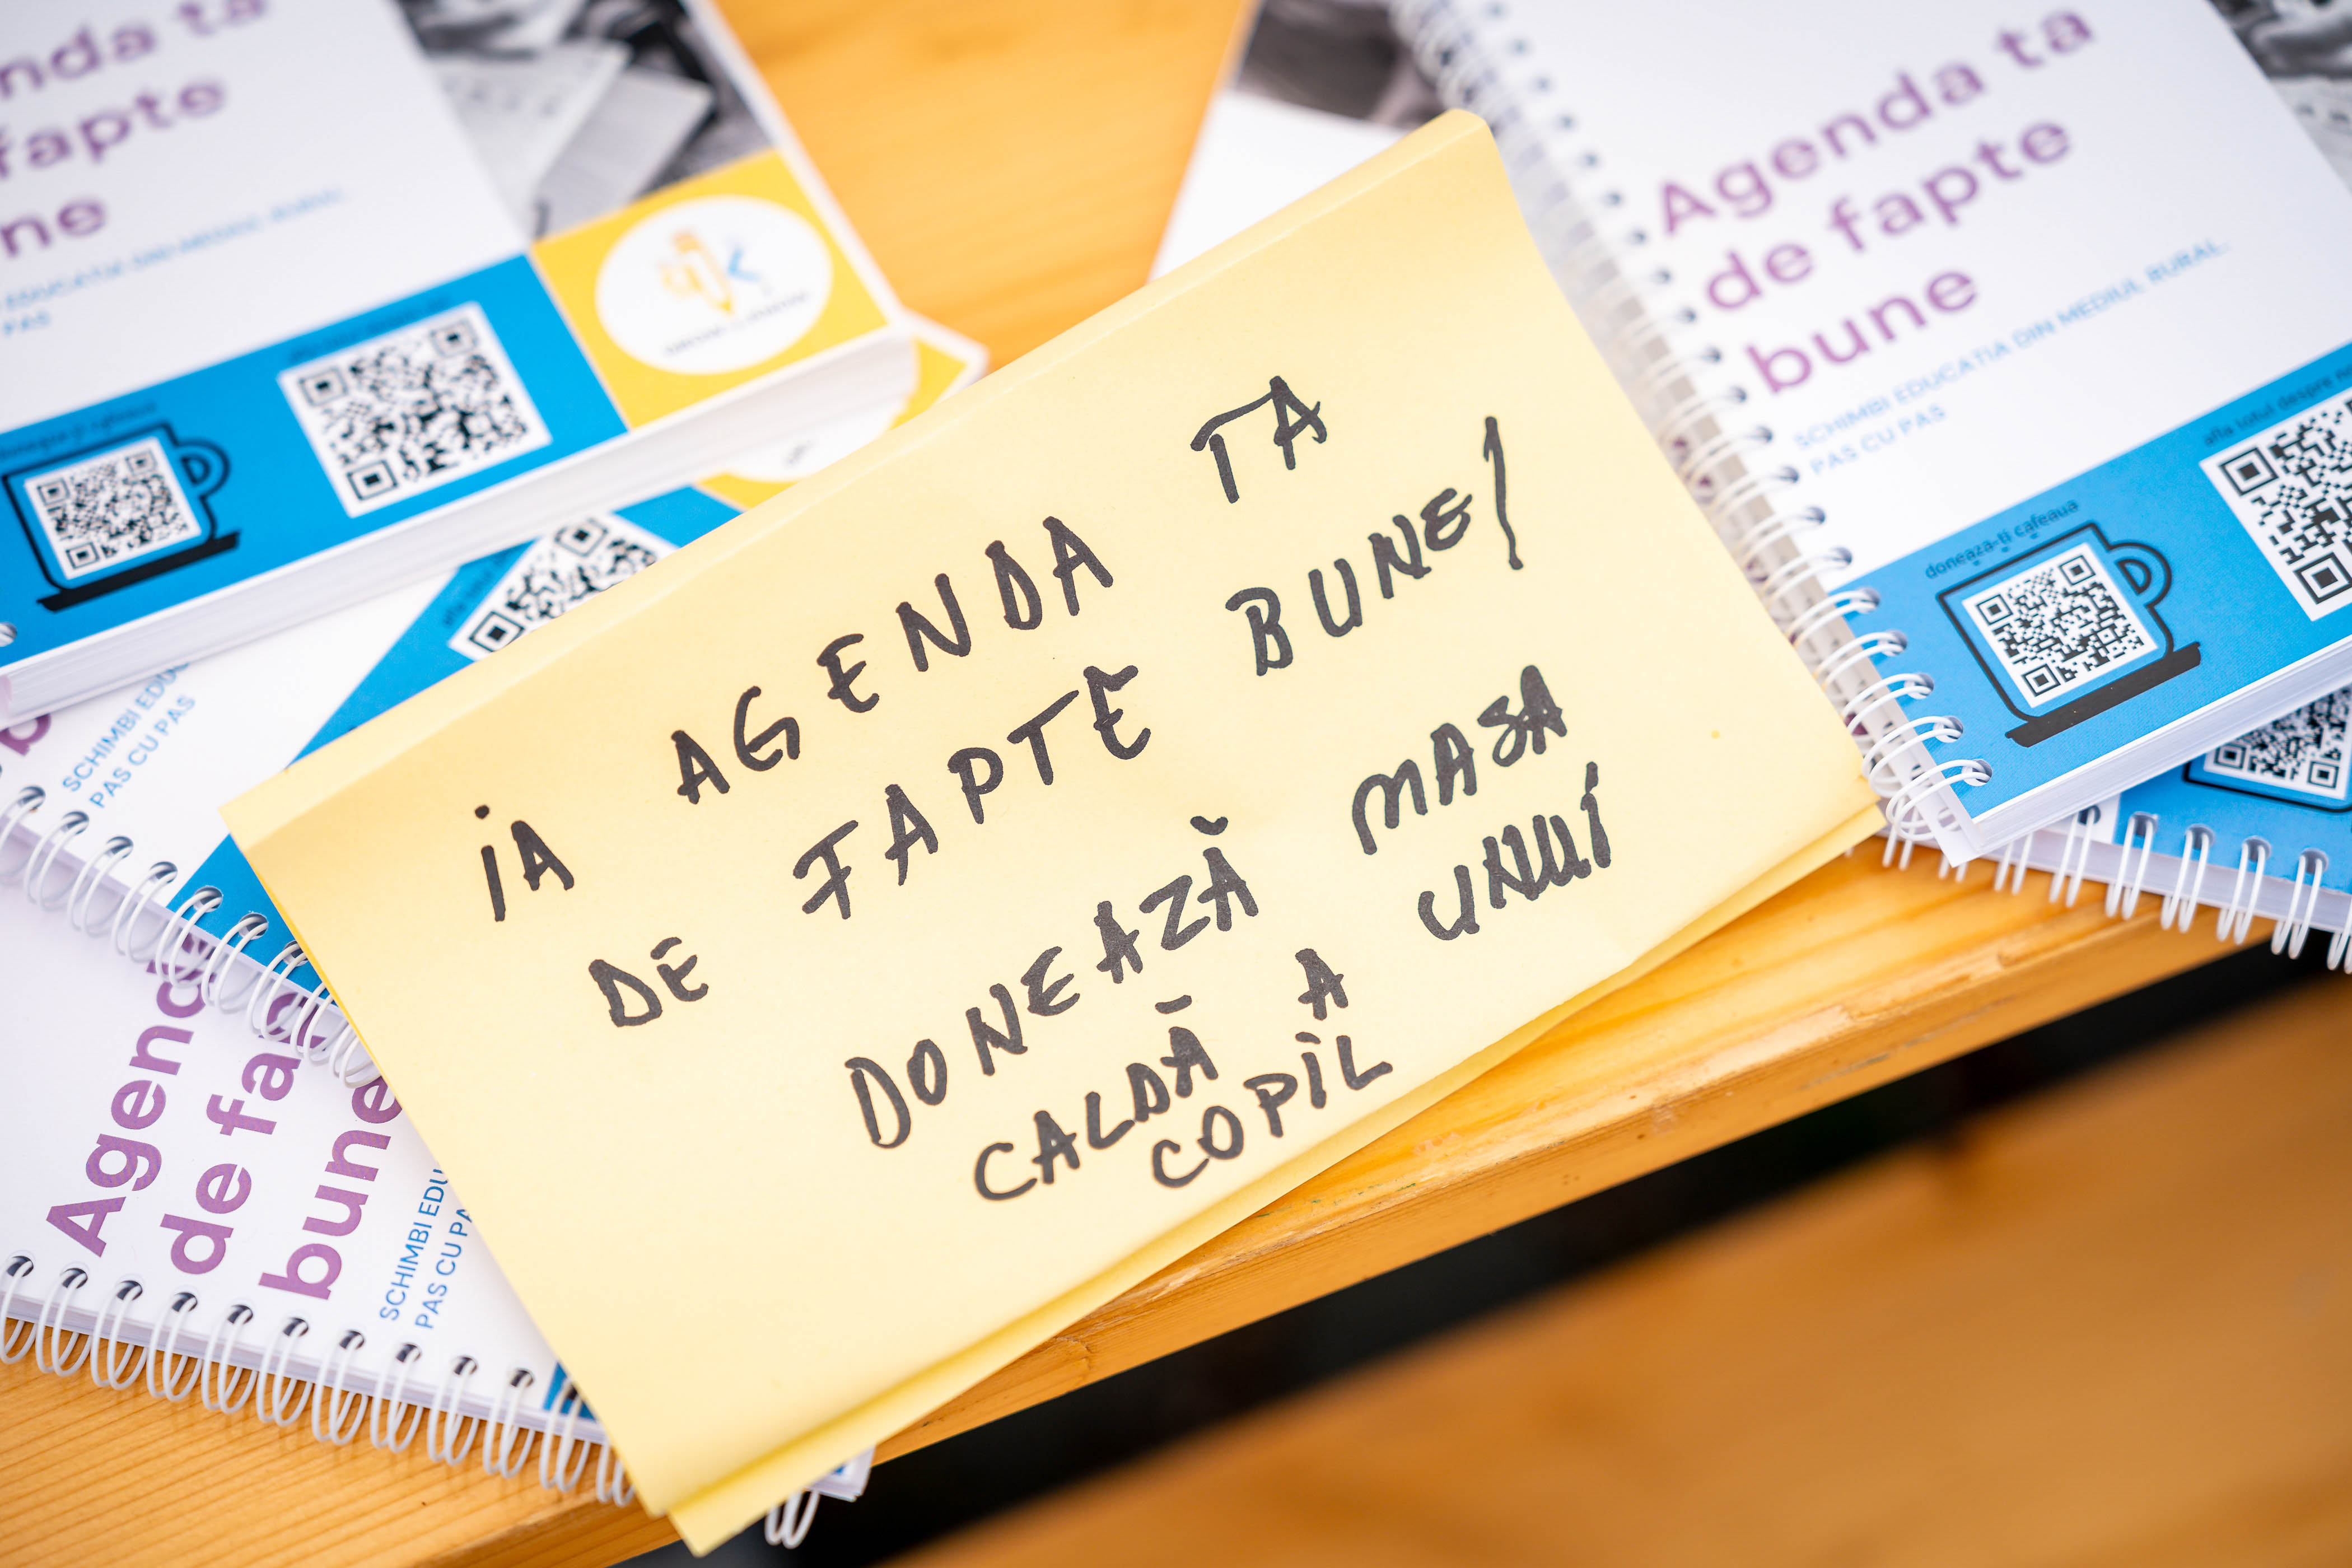 nda ta
fapte
ne
EDUCAȚIA DIN MEDIUL RURAL.
PAS
Agenda ta
de fapte
bune
SCHIMBI EDUCAȚIA DIN MEDIUL RURAL.
PAS CU PAS
donează-ți cafeaua
afla totul despre no
IA AGENDA TA
DE FAPTE BUNE!
DONEAZĂ MASA
CALDĂ A UNUI
COPIL
SCHIMBI EDU
PAS CU PAS
b
Agenda
de fap
bune
SCHIMBI EDU
PAS CU PA